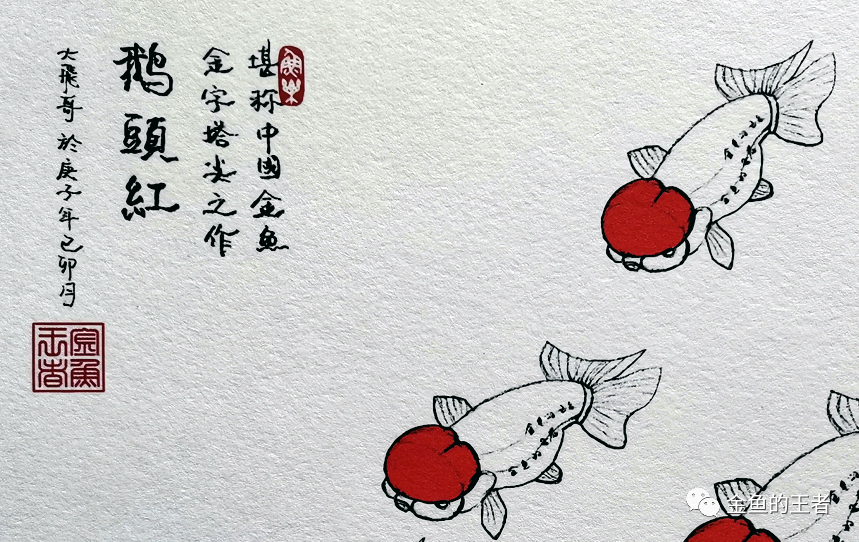 堪称中國金魚
金字塔尖之作
鵝頭紅
大飛哥 於庚子年己卯月
金鱼的王者